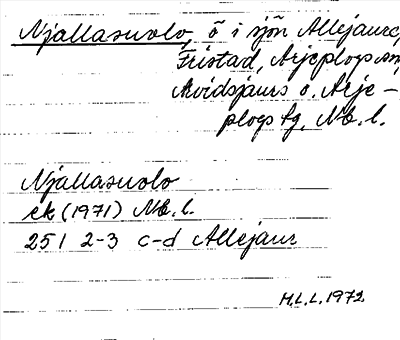 Njallasuolo, ö i sjön Allejaure,
Fristad, Arjeplogs sn,
Arvidsjaurs o. Arje-
plogs tg, Nb. l.
Njallasuolo
ek (1971) Nb. l.
25 I 2-3 c-d Allejaur
H.L.L. 1972